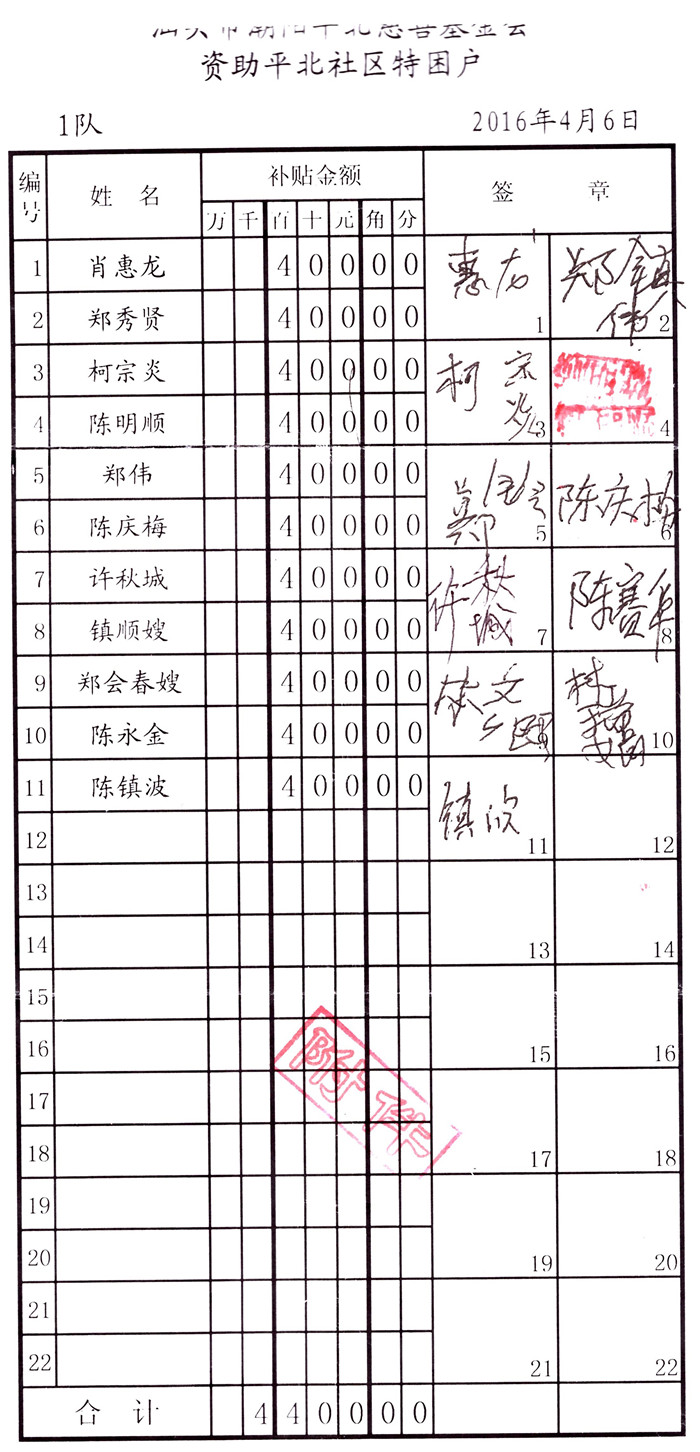 汕头市潮阳平北慈善基金会
资助平北社区特困户
1队 2016年4月6日
编号 姓名 补贴金额 签章
万 千 百 十 元 角 分
1 肖惠龙 4 0 0 0 0 惠龙 1 郑镇伟 2
2 郑秀贤 4 0 0 0 0
3 柯宗炎 4 0 0 0 0 柯宗炎 3 4
4 陈明顺 4 0 0 0 0
5 郑伟 4 0 0 0 0 郑伟 5 陈庆梅 6
6 陈庆梅 4 0 0 0 0
7 许秋城 4 0 0 0 0 许秋城 7 陈赛华 8
8 镇顺嫂 4 0 0 0 0
9 郑会春嫂 4 0 0 0 0 10
10 陈永金 4 0 0 0 0
11 陈镇波 4 0 0 0 0 镇欣 11 12
12
13 13 14
14
15 15 16
16
附件
17 17 18
18
19 19 20
20
21 21 22
22
合计 4 4 0 0 0 0